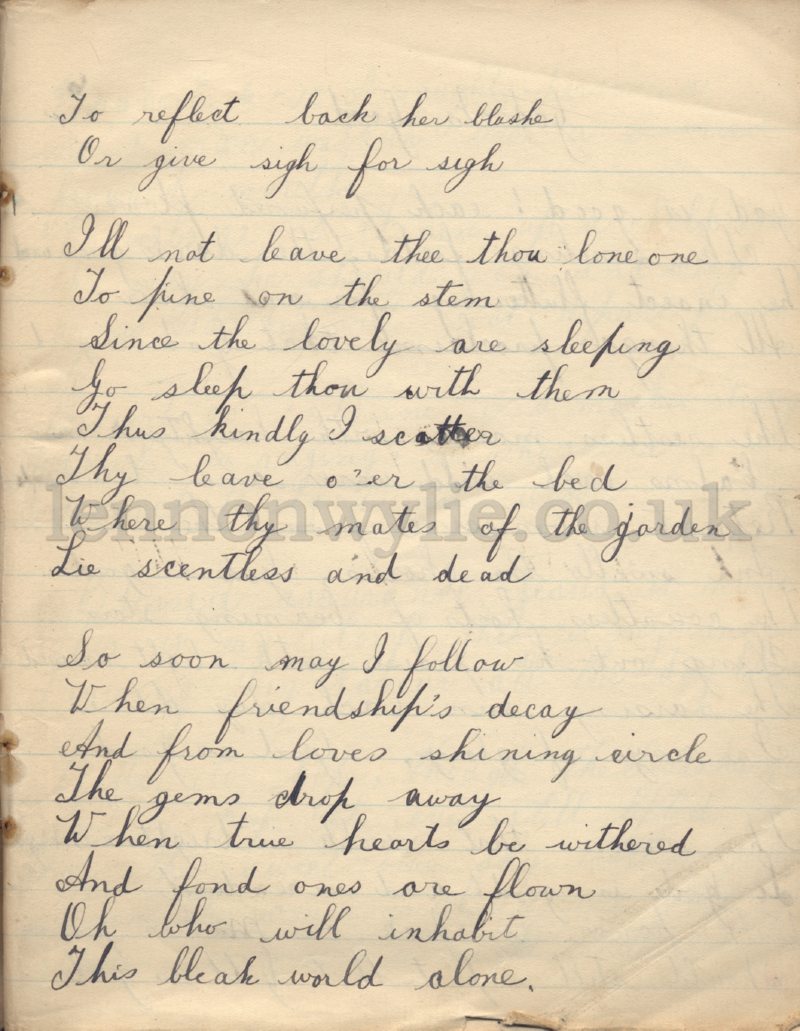 To reflect back her blushe
Or give sigh for sigh
I'll not leave thee thou lone one
To pine on the stem
Since the lovely are sleeping
Go sleep thou with them
Thus kindly I scatter
Thy leave o'er the bed
Where thy mates of the garden
Lie scentless and dead
So soon may I follow
When friendship's decay
And from loves shining circle
The gems drop away
When true hearts be withered
And fond ones are flown
Oh who will inhabit
This bleak world alone.
lennonwylie.co.uk